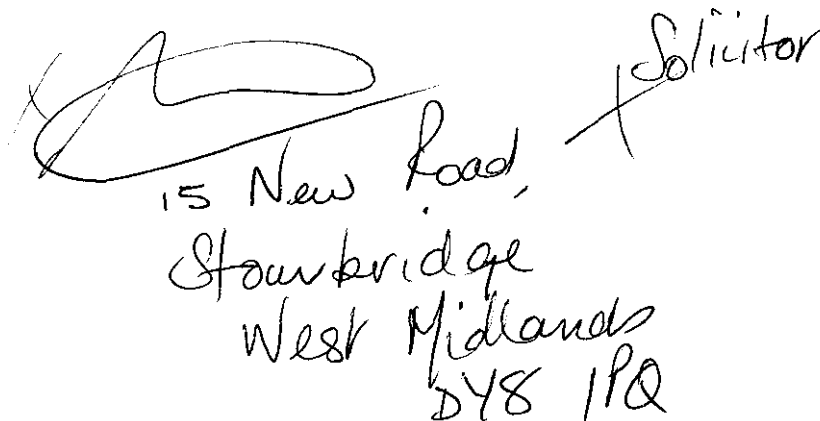 Solicitor
15 New Road,
Stourbridge
West Midlands
DY8 1PQ